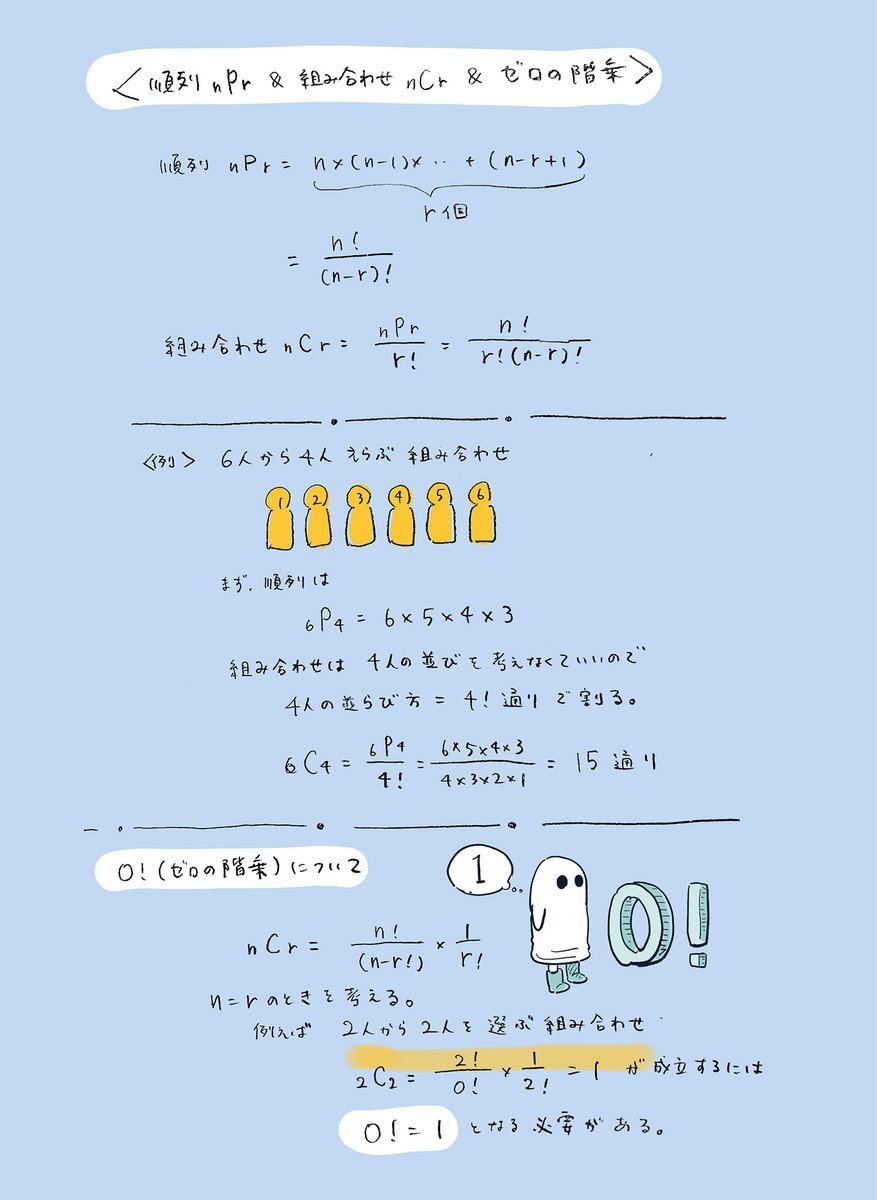 <順列 nPr & 組み合わせ nCr & ゼロの階乗>
順列 nPr = n×(n-1)× ‥ + (n-r+1)
r個
= n! / (n-r)!
組み合わせ nCr = nPr / r! = n! / r!(n-r)!
<例> 6人から4人えらぶ組み合わせ
1 2 3 4 5 6
まず、順列は
6P4 = 6×5×4×3
組み合わせは 4人の並びを考えなくていいので
4人の並らび方 = 4! 通りで割る。
6C4 = 6P4 / 4! = 6×5×4×3 / 4×3×2×1 = 15通り
0! (ゼロの階乗) について
1
0!
nCr = n! / (n-r!) × 1 / r!
n=rのときを考える。
例えば 2人から2人を選ぶ組み合わせ
2C2 = 2! / 0! × 1 / 2! = 1 が成立するには
0! = 1 となる必要がある。